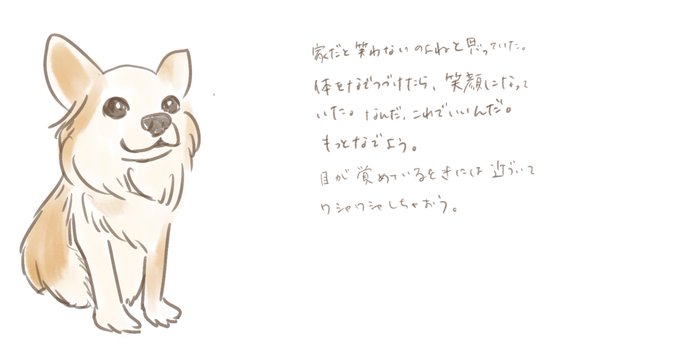 家だと笑わないのよねと思っていた。
体をなでつづけたら、笑顔になって
いた。なんだ、これでいいんだ。
もっとなでよう。
目が覚めているときには近づいて
ワシャワシャしちゃおう。